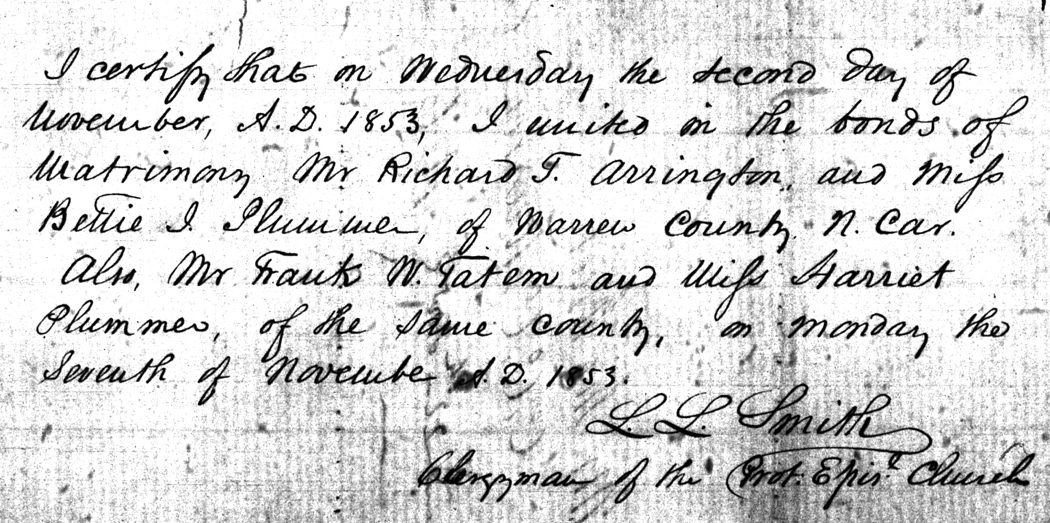 I certify that on Wednesday the second day of
November, A.D. 1853, I united in the bonds of
Matrimony Mr Richard T. Arrington, and Miss
Bettie J. Plummer, of Warren County N. Car.
Also, Mr Frank W. Tatem and Miss Harriet
Plummer, of the same county, on Monday the
Seventh of November A.D. 1853.
L. L. Smith
Clergyman of the Prot. Episl. Church